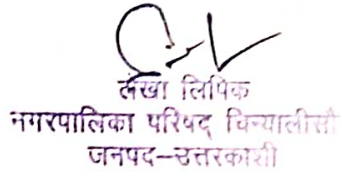 लेखा लिपिक
नगरपालिका परिषद् चिन्यालीसौ
जनपद–उत्तरकाशी